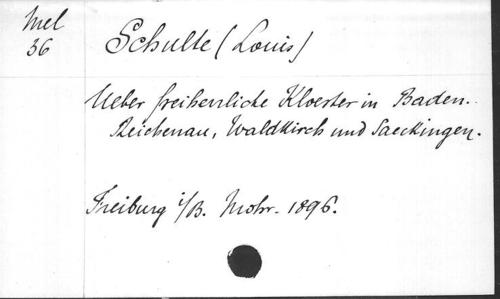 Mel
36
Schulte (Louis)
Ueber freiherrliche Kloester in Baden.
Reichenau, Waldkirch und Saeckingen.
Freiburg i/B. Mohr. 1896.